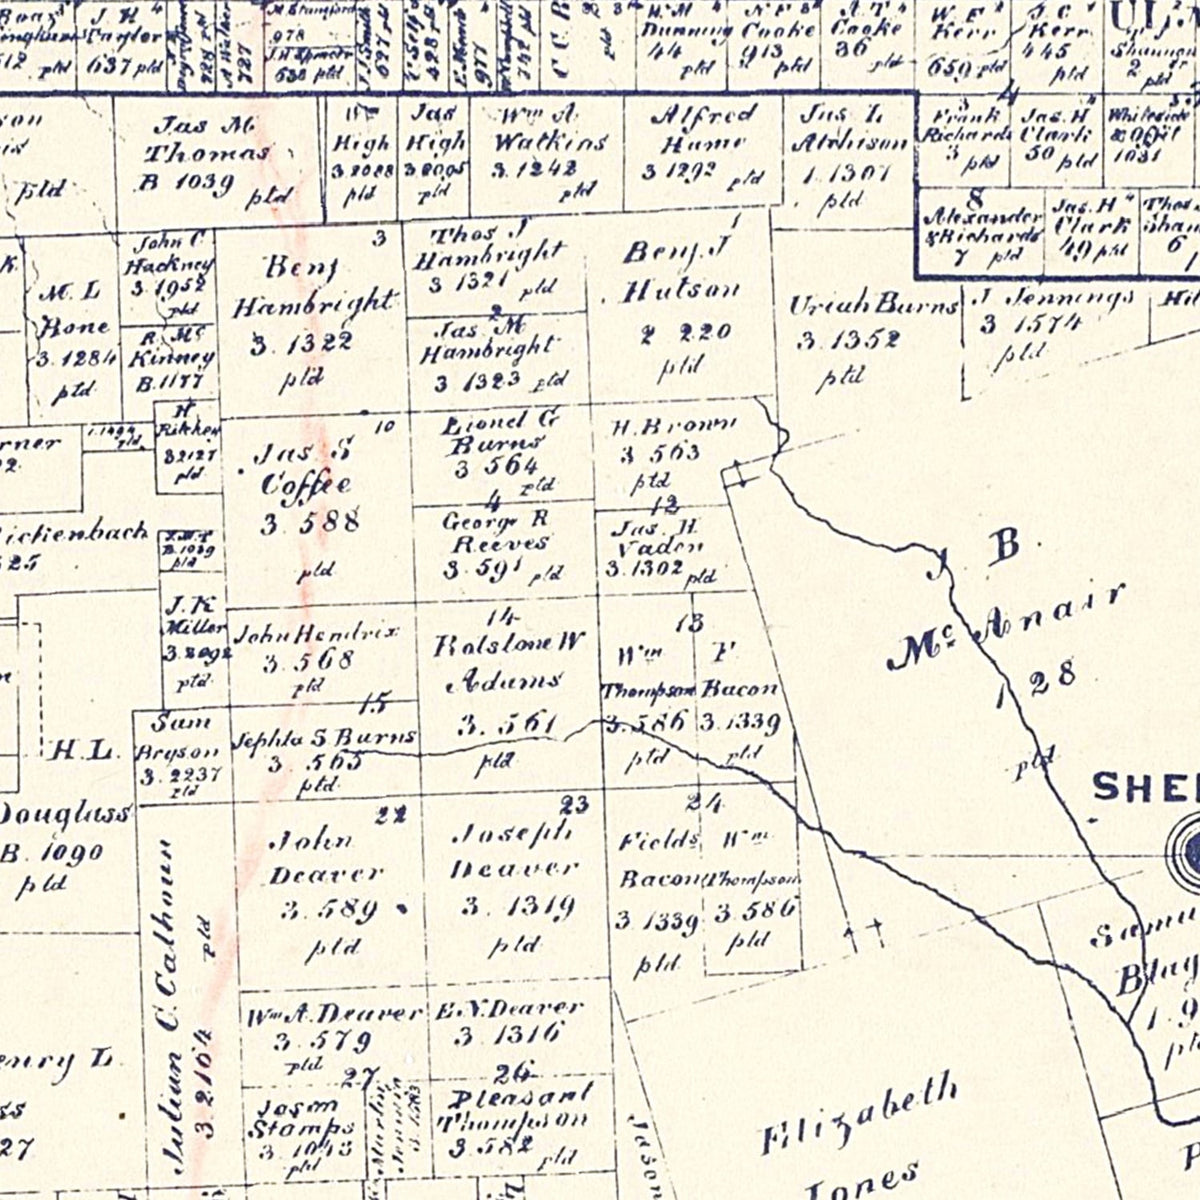 Taylor
637 pld
978
727
977
C. C. R.
W. M.
Dunning
44
pld
Cooke
913
pld
A. T.
Cooke
36
pld
W. F.
Kerr
659 pld
J. C.
Kerr
445
pld
Shannon
2
pld
pld
Jas M
Thomas
B 1039
pld
High
3.2088
pld
Jas
High
pld
Wm A
Watkins
3.1242
pld
Alfred
Hume
3 1292
pld
Jas L
Atchison
1.1301
pld
Frank
Richards
3
pld
Jas. H
Clark
50 pld
Whiteside
1031
8
Alexander
& Richards
7
pld
Jas. H
Clark
49 pld
Thos
6
M. L
Bone
3.1284
pld
John C
Hackney
3.1952
pld
R. Mc
Kinney
B.1177
3
Benj
Hambright
3.1322
pld
Thos J
Hambright
3 1321
pld
2
Jas. M
Hambright
3 1323 pld
1
Benj. J
Hutson
2 220
pld
Uriah Burns
3.1352
pld
J Jennings
3 1574
pld
H
3 2127
pld
10
Jas. S
Coffee
3.588
pld
Lionel G
Burns
3 564
pld
4
George R
Reeves
3.591
pld
H. Brown
3 563
pld
12
Jas. H
Vaden
3.1302
pld
ickenbach
25
B.1039
pld
J. K
Miller
3.2092
pld
John Hendrix
3.568
pld
14
Rolstone W
Adams
3.561
pld
13
Wm
Thompson
3.586
pld
F
Bacon
3.1339
pld
J B
McAnair
1 28
pld
15
Sam
Bryson
3.2237
pld
H. L.
Jephta S Burns
3.565
pld
Douglass
B. 1090
pld
22
John
Deaver
3.589
pld
23
Joseph
Deaver
3.1319
pld
24
Fields
Bacon
3.1339
pld
Wm
Thompson
3.586
pld
SHE
Samu
Blag
1.9
Julian C. Calhoun
3.2104
pld
Wm A. Deaver
3.579
pld
E. N. Deaver
3.1316
27
26
Stamps
3.1043
pld
Pleasant
Thompson
3.582
pld
enry L
27
Jason
Elizabeth
Jones